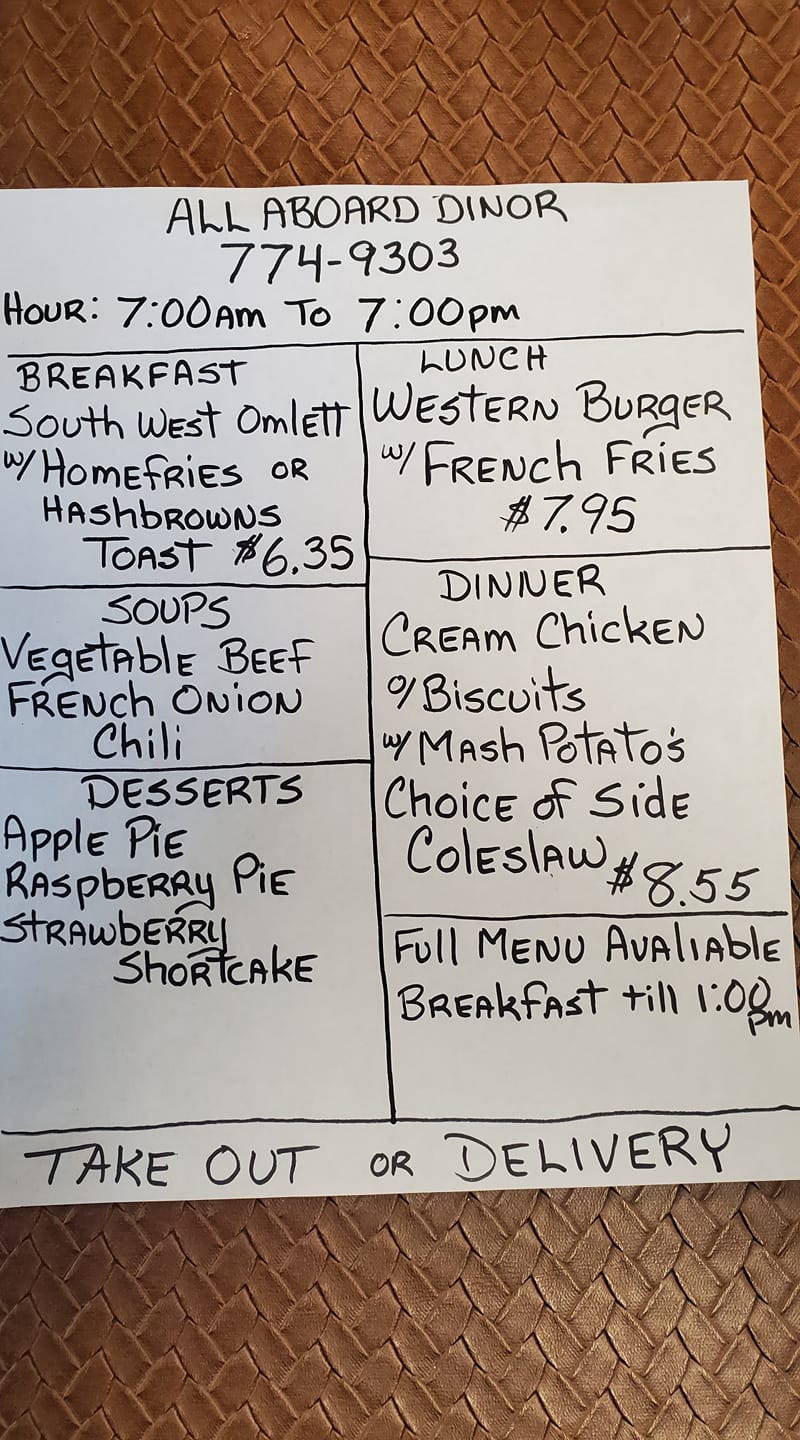 ALL ABOARD DINOR
774-9303
HOUR: 7:00AM TO 7:00PM
BREAKFAST
SOUTH WEST OMLETT
W/ HOMEFRIES OR
HASHBROWNS
TOAST $6.35
SOUPS
VEGETABLE BEEF
FRENCH ONION
CHILI
DESSERTS
APPLE PIE
RASPBERRY PIE
STRAWBERRY
SHORTCAKE
LUNCH
WESTERN BURGER
W/ FRENCH FRIES
$7.95
DINNER
CREAM CHICKEN
O/ BISCUITS
W/ MASH POTATO'S
CHOICE OF SIDE
COLESLAW $8.55
FULL MENU AVALIABLE
BREAKFAST TILL 1:00
PM
TAKE OUT OR DELIVERY